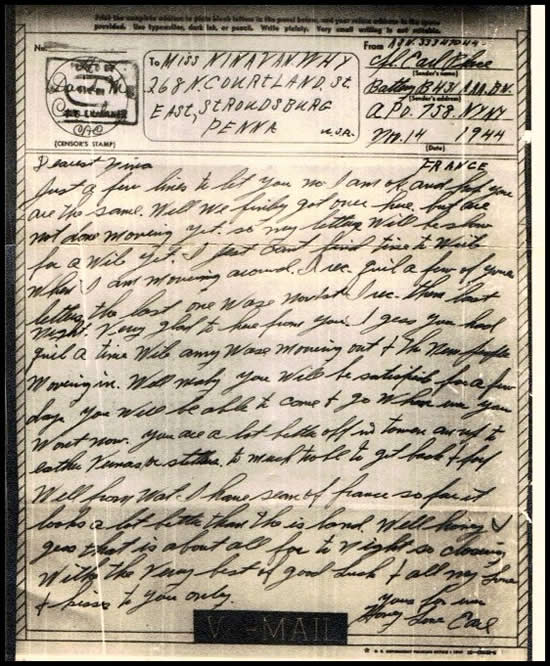 Print the complete address in plain block letters in the panel below, and your return address in the space
provided. Use typewriter, dark ink, or pencil. Write plainly. Very small writing is not suitable.
No.
(CENSOR'S STAMP)
To MISS NINA VAN WHY
268 N. COURTLAND. St.
EAST, STROUDSBURG
PENNA
U.S.A.
From ASN. 33347044
Carl
(Sender's name)
Battery B 431 A.A.A. BN.
(Sender's address)
A.P.O. 758. N.Y. N.Y
14 1944
(Date)
FRANCE
Dearest Nina
Just a few lines to let you no I am ok and hop you
are the same. Well we finly got over here, but are
not done moveing yet. so my letters will be slow
for a wile yet. I just cant find time to write
when I am moveing around. I rec. quit a few of your
letters the last one wase I rec. them last
night. Very glad to here from you. I gess you had
quit a time wile amy wase moveing out + the new people
moveing in. Well you will be satisfied for a few
days you will be able to come + go when ever you
wont now. you are a lot better off in town an up to
to much to get back + 
Well from what I have sean of france so far it
looks a lot better than the is land. Well honey I
gess that is about all for to night so closeing
with the very best of good luck + all my love
+ kisses to you only.
yours for ever
Honey Love Carl
V - MAIL